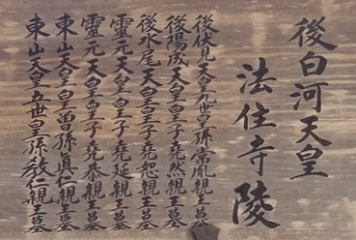 後白河天皇
法住寺陵
後伏見天皇九世孫常胤親王墓
後陽成天皇皇子堯然親王墓
後水尾天皇皇子堯恕親王墓
靈元天皇皇子堯延親王墓
靈元天皇皇子堯恭親王墓
東山天皇曽孫真仁親王墓
東山天皇五世皇孫教仁親王墓